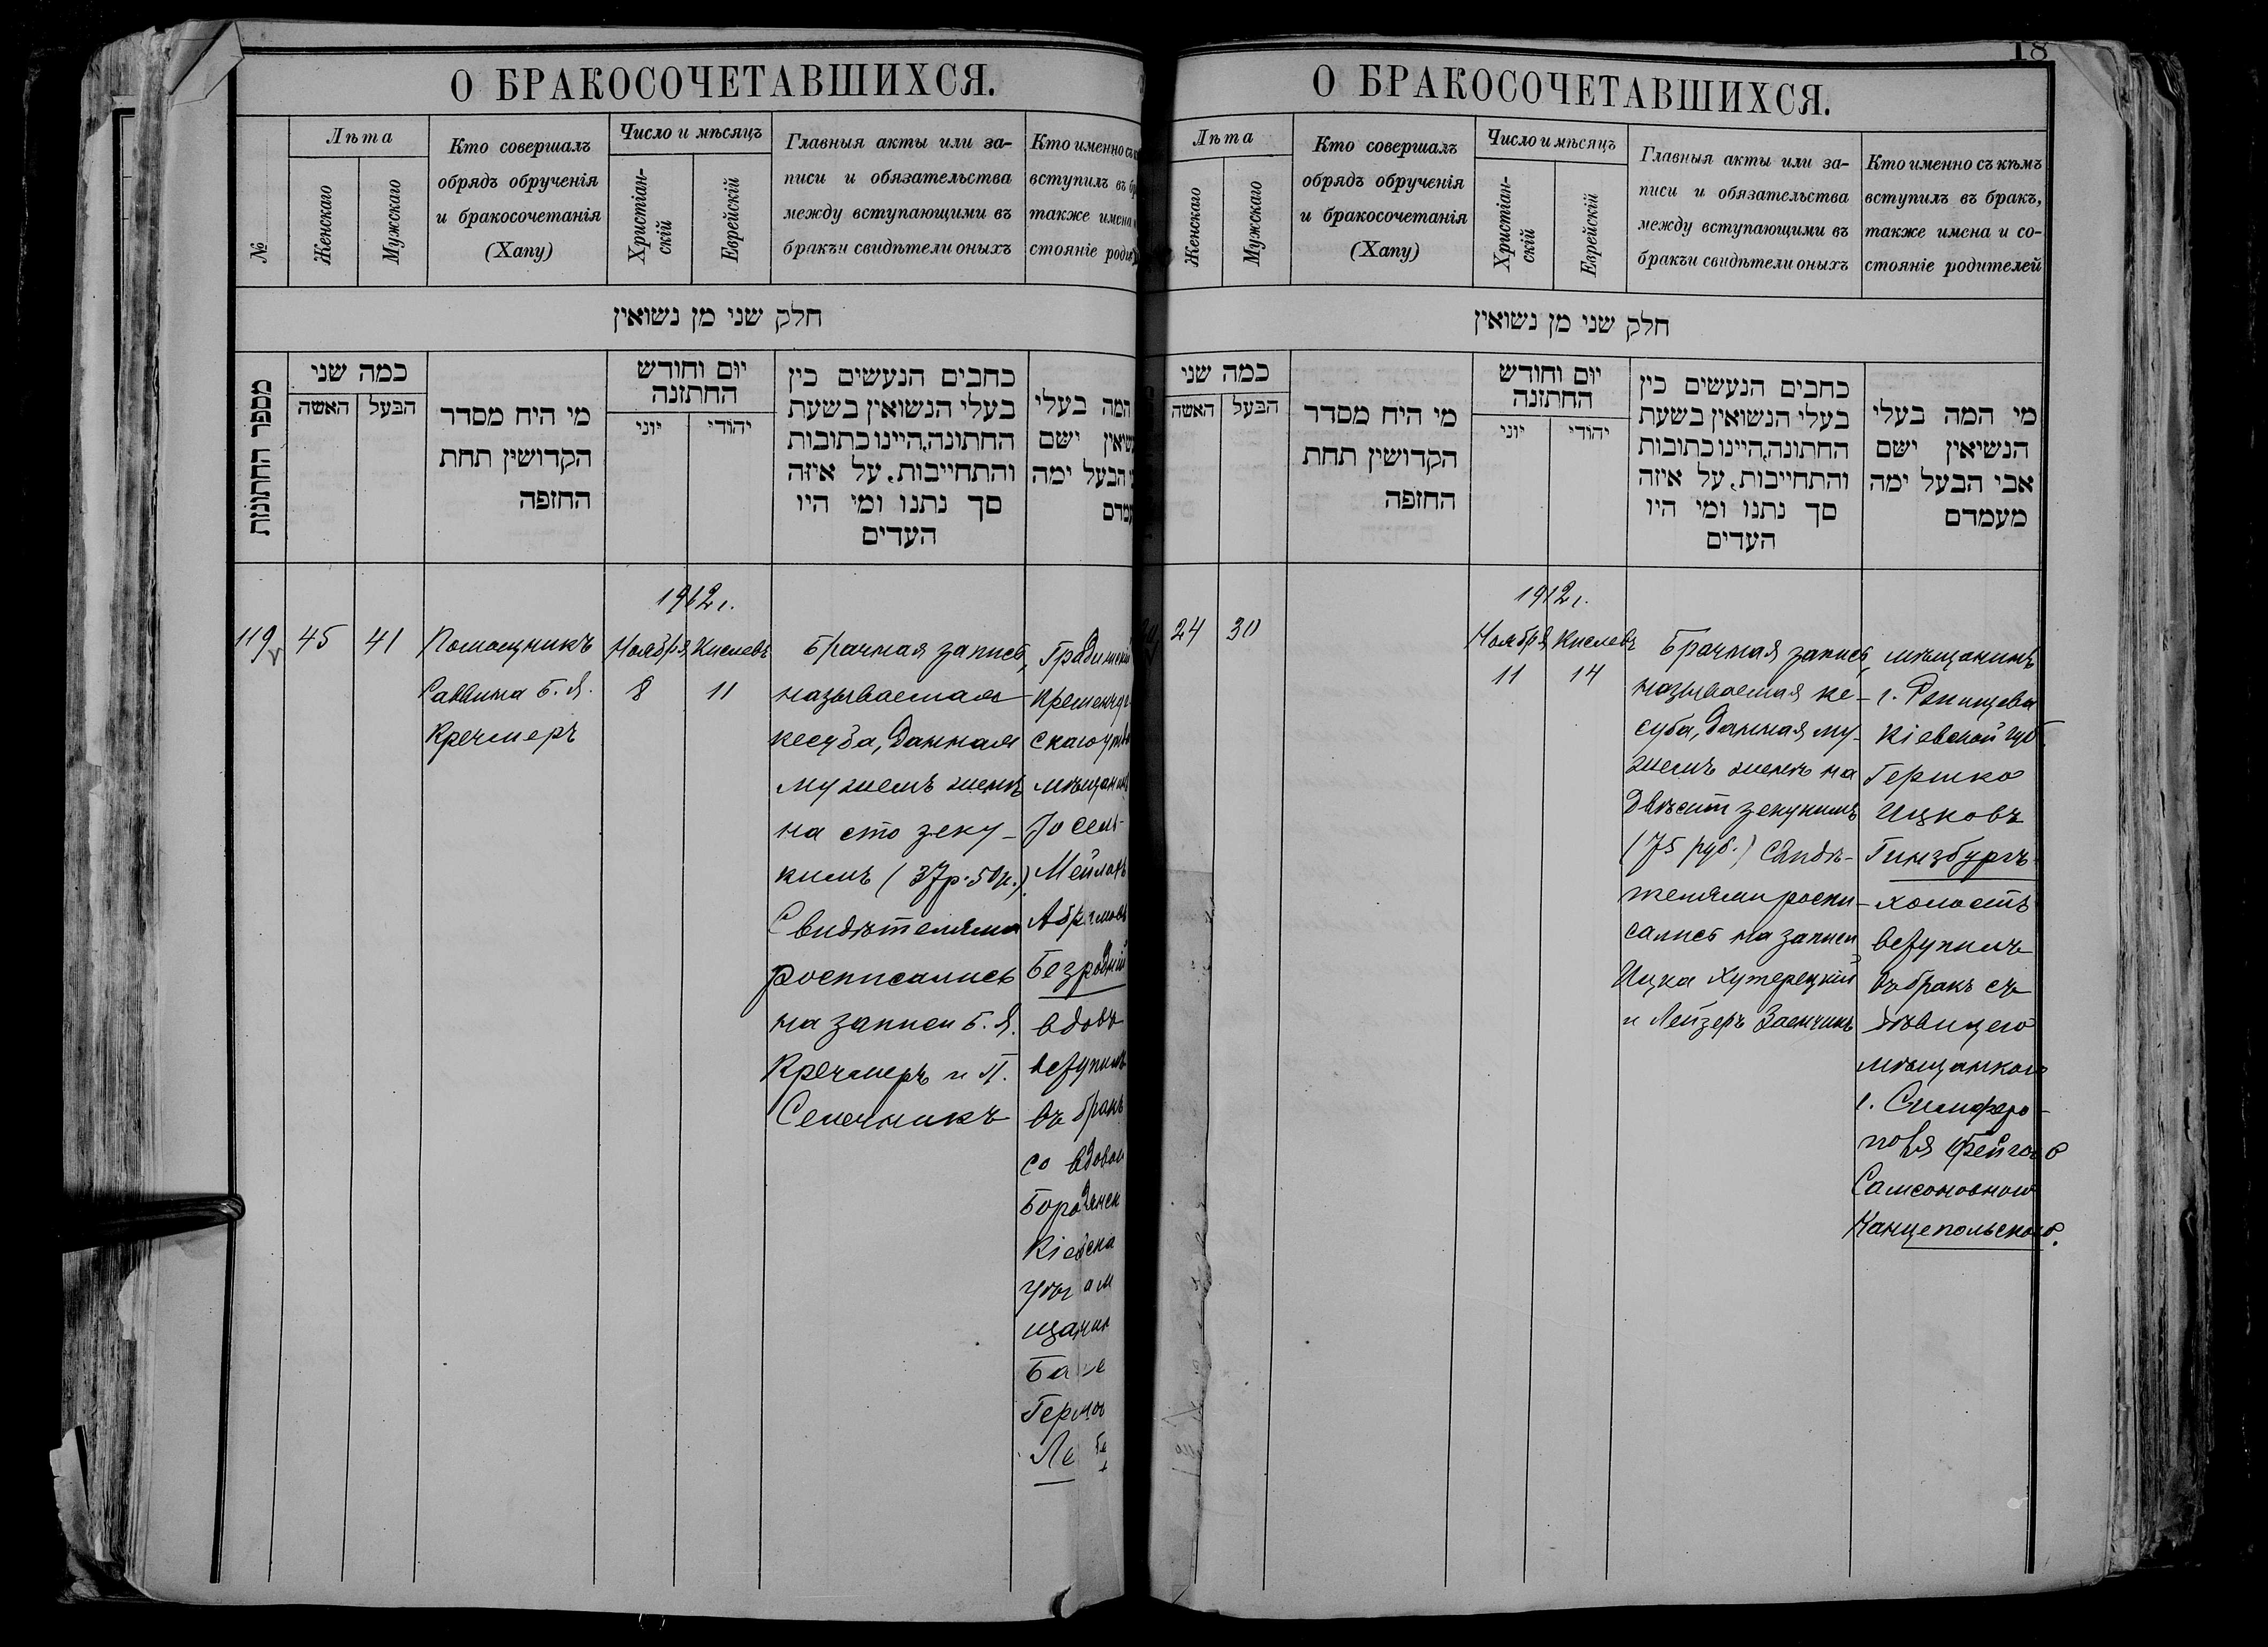 О БРАКОСОЧЕТАВШИХСЯ.
№
Лѣта
Женскаго
Мужскаго
Кто совершалъ
обрядъ обрученія
и бракосочетанія
(Хапу)
Число и мѣсяцъ
Христіан-
скій
Еврейскій
Главныя акты или за-
писи и обязательства
между вступающими въ
бракъи свидѣтели оныхъ
Кто именно съ
вступилъ въ
также имена
стояніе
חלק שני מן נשואין
מספר החתונות
כמה שני
האשה
הבעל
מי היח מסדר
הקדושין תחת
החזפה
יום וחודש
החתזנה
יוני
יהודי
כחבים הנעשים כין
בעלי הנשואין בשעת
החתונה,היינו כתובות
והתחייבות, על איזה
סך נתנו ומי היו
העדים
המה בעלי
ישם
הבעל ימה
119
45
41
Помощникъ
Раввина Б. Я.
Кречмеръ
1912 г.
Ноября
8
Кислевъ
11
Брачная запись,
называемая
кесуба, данная
мужемъ женѣ
на сто зеку-
кимъ (37р. 50к.).
Свидѣтелями
росписались
на записи Б. Я.
Кречмеръ и П.
Сенечникъ
Градижскій
Кременчуг-
скаго
мѣщанинъ
Іосель-
Мейлахъ
Абрамовъ
Безродный
вдовъ
вступилъ
въ бракъ
со вдовой
Бородянск
Кіевска
щанин
Ле
18
О БРАКОСОЧЕТАВШИХСЯ.
Лѣта
Женскаго
Мужскаго
Кто совершалъ
обрядъ обрученія
и бракосочетанія
(Хапу)
Число и мѣсяцъ
Христіан-
скій
Еврейскій
Главныя акты или за-
писи и обязательства
между вступающими въ
бракъи свидѣтели оныхъ
Кто именно съ кѣмъ
вступилъ въ бракъ,
также имена и со-
стояніе родителей
חלק שני מן נשואין
כמה שני
האשה
הבעל
מי היח מסדר
הקדושין תחת
החזפה
יום וחודש
החתזנה
יוני
יהודי
כחבים הנעשים כין
בעלי הנשואין בשעת
החתונה,היינו כתובות
והתחייבות, על איזה
סך נתנו ומי היו
העדים
מי המה בעלי
הנשיאין ישם
אבי הבעל ימה
מעמדם
24
30
1912 г.
Ноября
11
Кислевъ
14
Брачная запись,
называемая ке-
суба, данная му-
жемъ женѣ на
двѣсти зекукимъ
(75 руб.) Свидѣ-
телями роспи-
сались на записи
Ицка Хутерецкій
и Лейзеръ Заенчикъ
мѣщанинъ
г.
Кіевской губ.
Гершко
Ицковъ
Гинзбургъ
холостъ
вступилъ
въ бракъ съ
дѣвицею
мѣщанкою
г. Симферо-
поля Фейгою
Самсоновною
Канцепольскою.